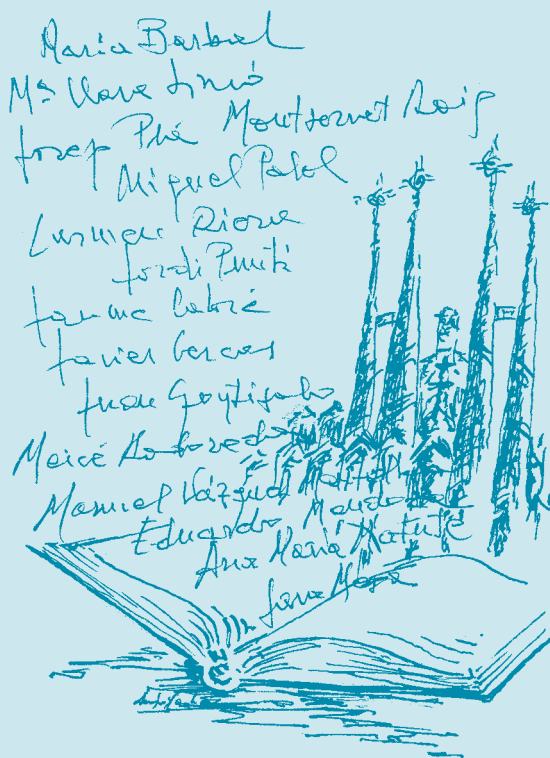 Maria Barbal
Mª Clara Simó
Montserrat Roig
Josep Pla
Miquel Palol
Carme Riera
Jordi Puntí
Jaume Cabré
Javier Cercas
Juan Goytisolo
Mercé Rodoreda
Manuel Vázquez Montalb
Eduardo Mendoza
Ana María Matute
Juan